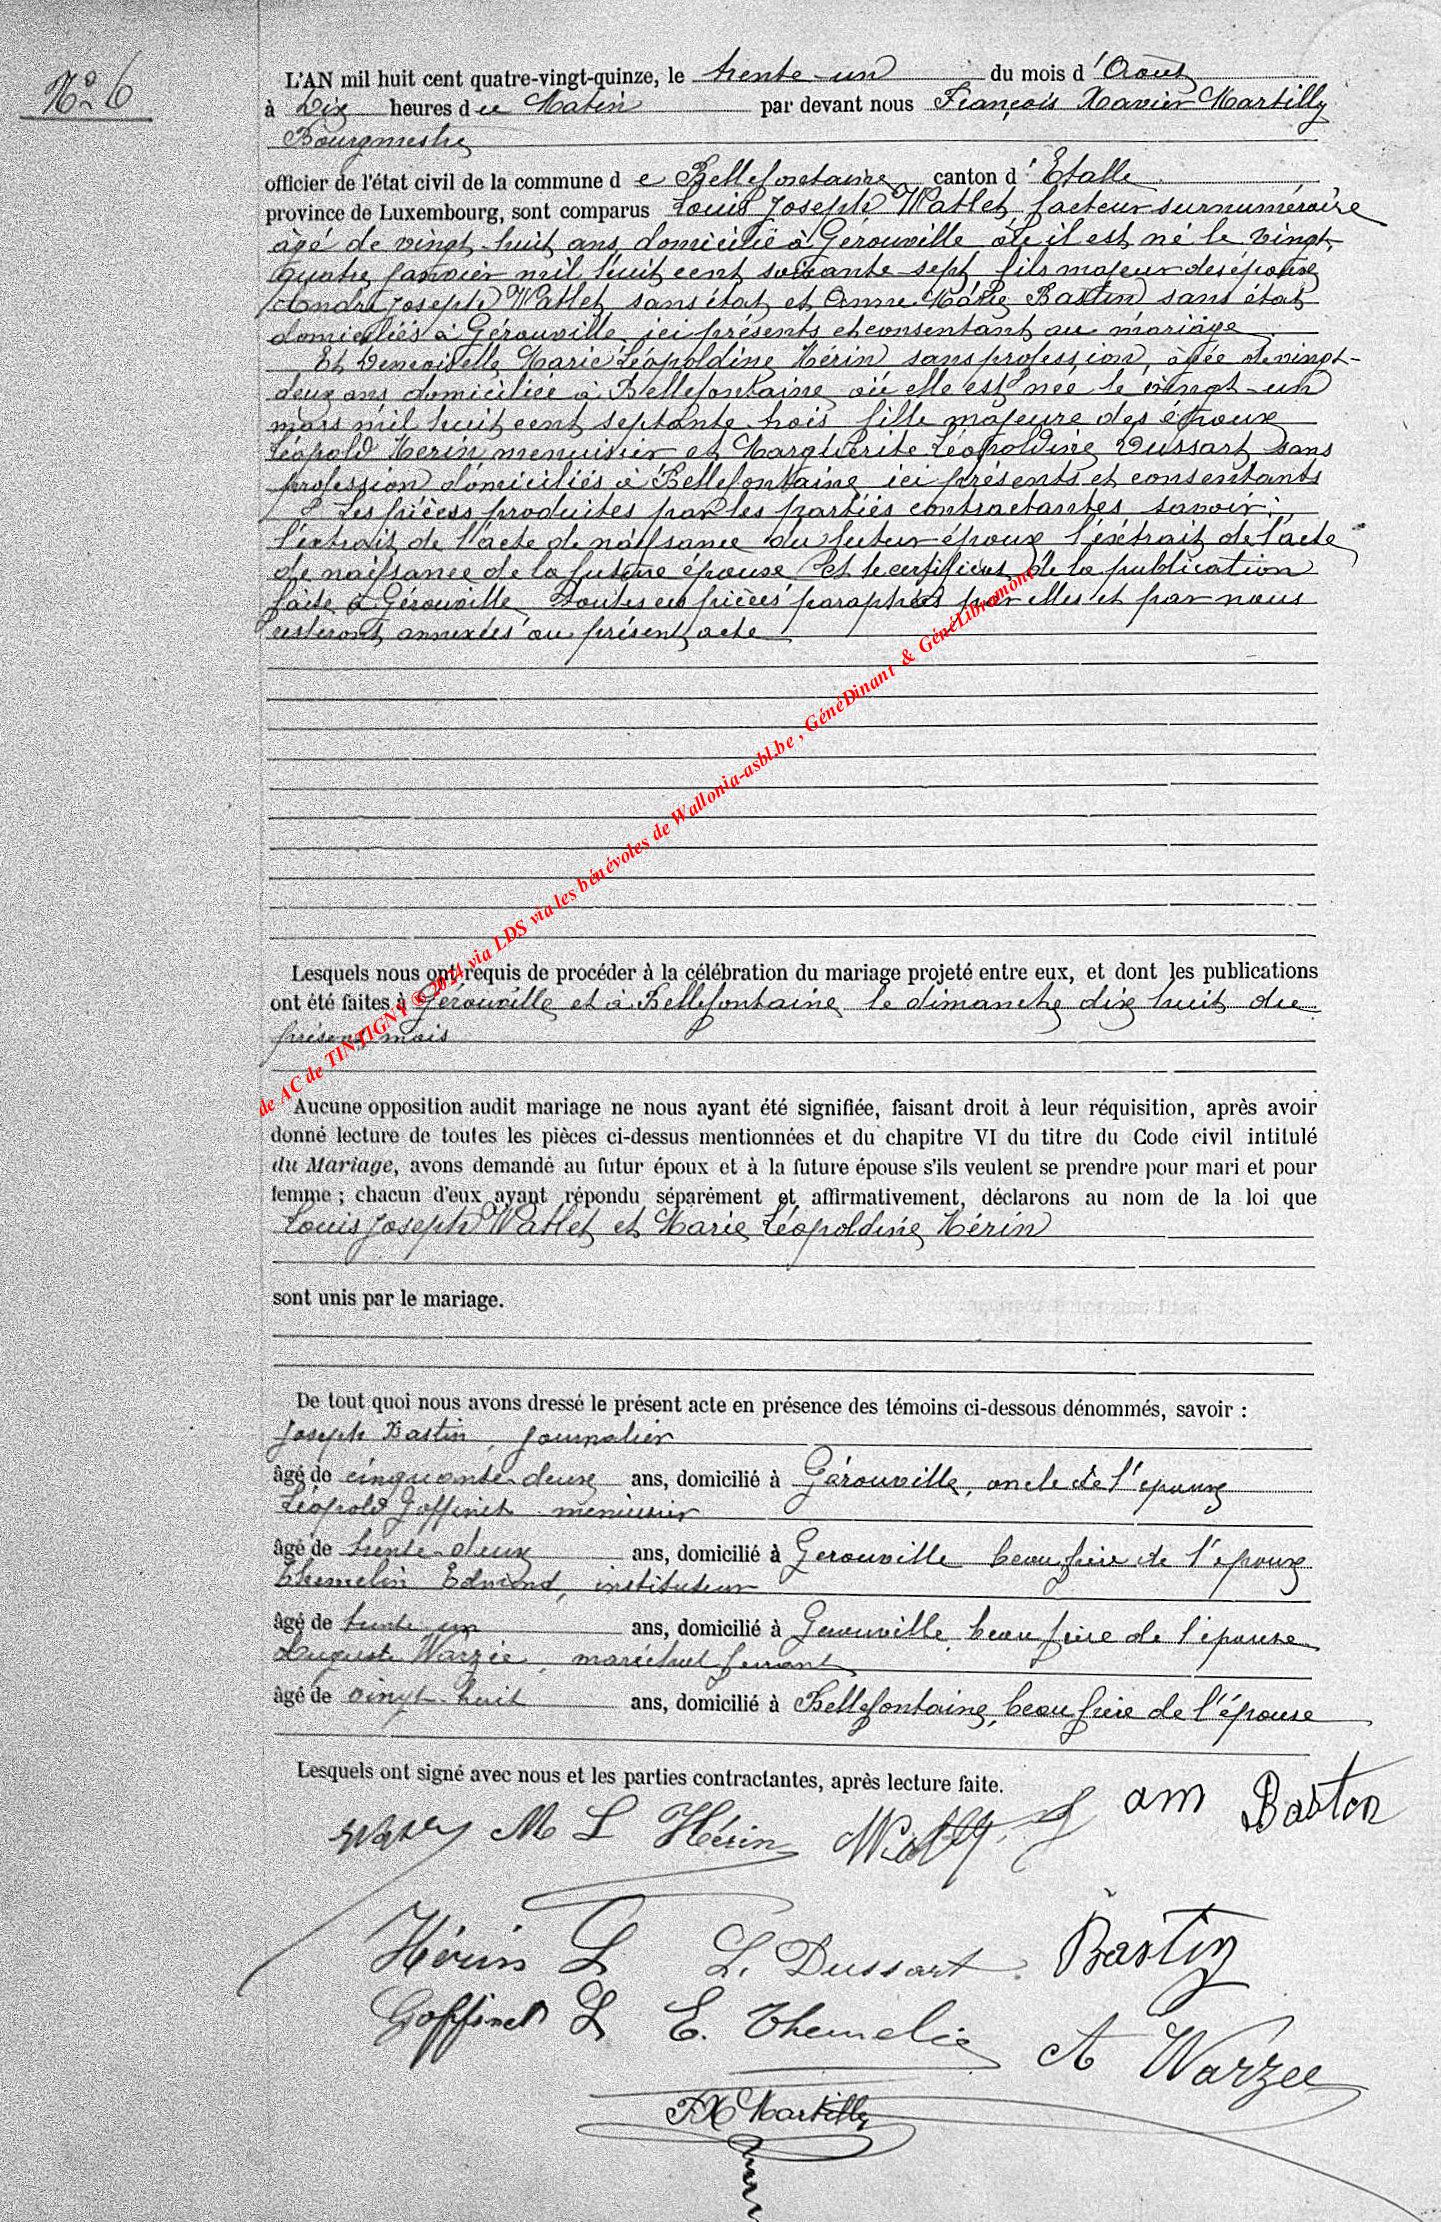 N° 6
L'AN mil huit cent quatre-vingt-quinze, le trente-un du mois d'Août
à Dix heures du Matin par devant nous François Xavier Martilly
Bourgmestre
officier de l'état civil de la commune de Bellefontaine canton d'Etalle
province de Luxembourg, sont comparus Louis Joseph Watlet, facteur surnuméraire
âgé de vingt-huit ans, domicilié à Gérouville où il est né le vingt-
quatre janvier mil huit cent soixante-sept, fils majeur des époux
André Joseph Watlet, sans état et Anne Marie Bastin sans état
domiciliés à Gérouville, ici présents et consentant au mariage
Et Demoiselle Marie Léopoldine Hérin sans profession, âgée de vingt-
deux ans domiciliée à Bellefontaine où elle est née le vingt-un
mars mil huit cent septante trois fille majeure des époux
Léopold Herin menuisier et Marguerite Léopoldine Dussart, sans
profession domiciliés à Bellefontaine ici présents et consentants
Les pièces produites par les parties contractantes savoir:
l'extrait de l'acte de naissance du futur époux l'extrait de l'acte
de naissance de la future épouse et le certificat de la publication
faite à Gérouville. Toutes ces pièces paraphées par elles et par nous
resteront annexées au présent acte
de AC de TINTIGNY © 2024 via LDS via les bénévoles de Wallonia-asbl.be , GénéDinant & GénéLibramont
Lesquels nous ont requis de procéder à la célébration du mariage projeté entre eux, et dont les publications
ont été faites à Gérouville et à Bellefontaine le dimanche dix huit du
présent mois
Aucune opposition audit mariage ne nous ayant été signifiée, faisant droit à leur réquisition, après avoir
donné lecture de toutes les pièces ci-dessus mentionnées et du chapitre VI du titre du Code civil intitulé
du Mariage, avons demandé au futur époux et à la future épouse s'ils veulent se prendre pour mari et pour
femme ; chacun d'eux ayant répondu séparément et affirmativement, déclarons au nom de la loi que
Louis Joseph Watlet et Marie Léopoldine Hérin
sont unis par le mariage.
De tout quoi nous avons dressé le présent acte en présence des témoins ci-dessous dénommés, savoir :
Joseph Bastin, journalier
âgé de cinquante-deux ans, domicilié à Gérouville, oncle de l'époux
Léopold Goffinet menuisier
âgé de trente-deux ans, domicilié à Gerouville beau frère de l'époux
Themelin Edmond, instituteur
âgé de trente un ans, domicilié à Gerouville beau frère de l'épouse
Auguste Warzée, maréchal ferrant
âgé de vingt-huit ans, domicilié à Bellefontaine, beau frère de l'épouse
Lesquels ont signé avec nous et les parties contractantes, après lecture faite.
M L Hérin am Baston
Hérin L L. Dussart Bastin
Goffinet L E. Themelin A Warzée
FX Martilly